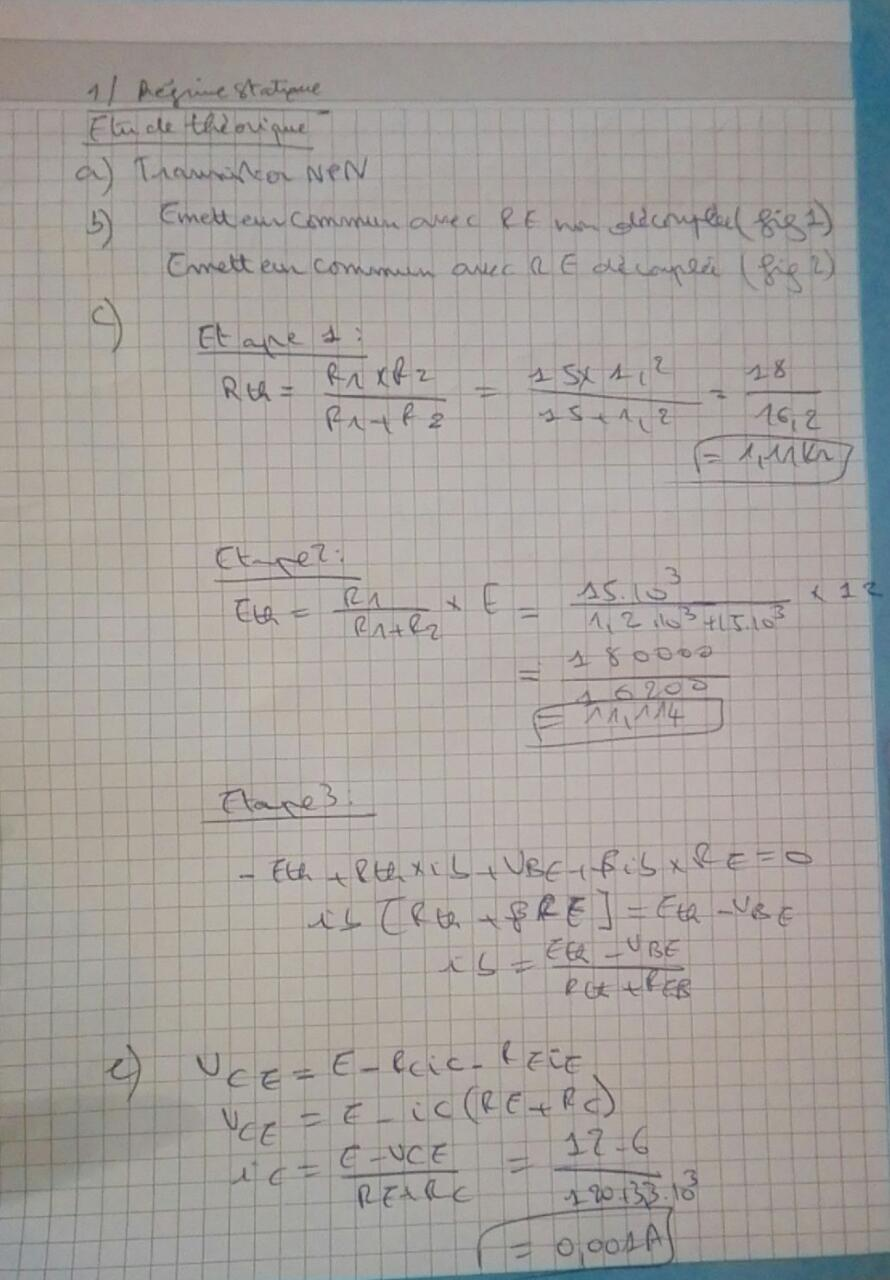 1/ Régime statique
Etude théorique
a) Transistor NPN
b) Emetteur commun avec RE non découplée (fig 1)
Emetteur commun avec RE découplée (fig 2)
c)
Etape 1 :
Rth = R1 x R2 / R1 + R2 = 15 x 1,2 / 15 + 1,2 = 18 / 16,2
= 1,11 kΩ
Etape 2 :
Eth = R1 / R1+R2 x E = 15.10³ / 1,2.10³ + 15.10³ x 12
= 180000 / 16200
= 11,114
Etape 3 :
- Eth + Rth x ib + VBE + β ib x RE = 0
ib [Rth + β RE] = Eth - VBE
ib = Eth - VBE / Rth + REB
e) VCE = E - RCiC - REiE
VCE = E - iC (RE + RC)
iC = E - VCE / RE + RC = 12 - 6 / 120+3,3.10³
= 0,001A